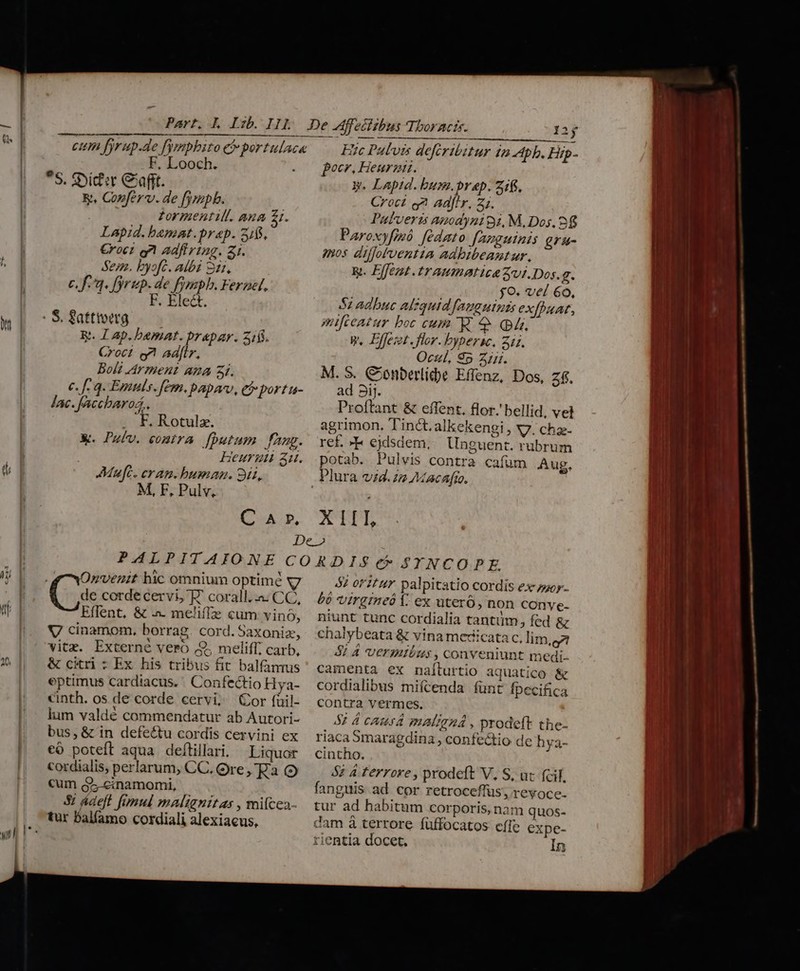 Part. I. Lib. III. De Affectibus Thoracis. 125
cum syrup. de symphito & portulaca
F. Looch.
S. Dicker Safft.
℞. Conserv. de symph.
tormentill. ana ʒi.
Lapid. hæmat. præp. ʒiß.
Croci ♂ adstring. ʒi.
Sem. hyosc. albi ℈ii.
c. s. q. syrup. de symph. Fernel.
F. Elect.
S. Lattwerg
℞. Lap. hæmat. præpar. ʒiß.
Croci ♂ adstr.
Boli Armeni ana ʒi.
c. s. q. Emuls. sem. papav. & portu-
lac. saccharo.
F. Rotulæ.
℞. Pulv. contra sputum sang.
Heurnii ʒii.
Musc. cran. human. ℈ii.
M. F. Pulv.
Hic Pulvis describitur in Aph. Hip-
pocr. Heurnii.
℞. Lapid. hum. præp. ʒiß.
Croci ♂ adstr. ʒi.
Pulveris anodyni ℈i. M. Dos. ℈ß
Paroxysmô sedato sanguinis gru-
mos dissolventia adhibeantur.
℞. Essent. traumaticæ ʒvi. Dos. g.
50. vel 60.
Si adhuc aliquid sanguinis exspuat,
misceatur hoc cum
℞. Essent. flor. hyperic. ʒii.
Ocul. ♋ ʒiii.
M. S. Sonderliche Essenz, Dos, ʒß.
ad ℈ij.
Prostant & essent. flor. bellid. vel
agrimon. Tinct. alkekengi, 🜄. chæ-
ref. ejdsdem, Unguent. rubrum
potab. Pulvis contra casum Aug.
Plura vid. in Macasio.
CAP. XIII.
De
PALPITATIONE CORDIS & SYNCOPE.
Convenit hîc omnium optimè 🜄
de corde cervi, corall. CC,
Essent. & melissæ cum vinô,
🜄 cinamom. borrag. cord. Saxoniæ,
vitæ. Externè verò meliss. carb.
& citri : Ex his tribus fit balsamus
optimus cardiacus. Confectio Hya-
cinth. os de corde cervi. Cor suil-
lum valdè commendatur ab Autori-
bus, & in defectu cordis cervini ex
eô potest aqua destillari. Liquor
cordialis, perlarum, CC.
cum cinamomi.
Si adest simul malignitas, miscea-
tur balsamo cordiali alexiacus.
Si oritur palpitatio cordis ex mor-
bô virgineô s. ex uterô, non conve-
niunt tunc cordialia tantùm, sed &
chalybeata & vina medicata c. lim. ♂
Si à vermibus, conveniunt medi-
camenta ex nasturtio aquatico &
cordialibus miscenda sunt specifica
contra vermes.
Si à causâ malignâ, prodest the-
riaca Smaragdina, confectio de hya-
cintho.
Si à terrore, prodest V. S. ut scil.
sanguis ad cor retrocessus, revoce-
tur ad habitum corporis, nam quos-
dam à terrore suffocatos esse expe-
rientia docet.
In